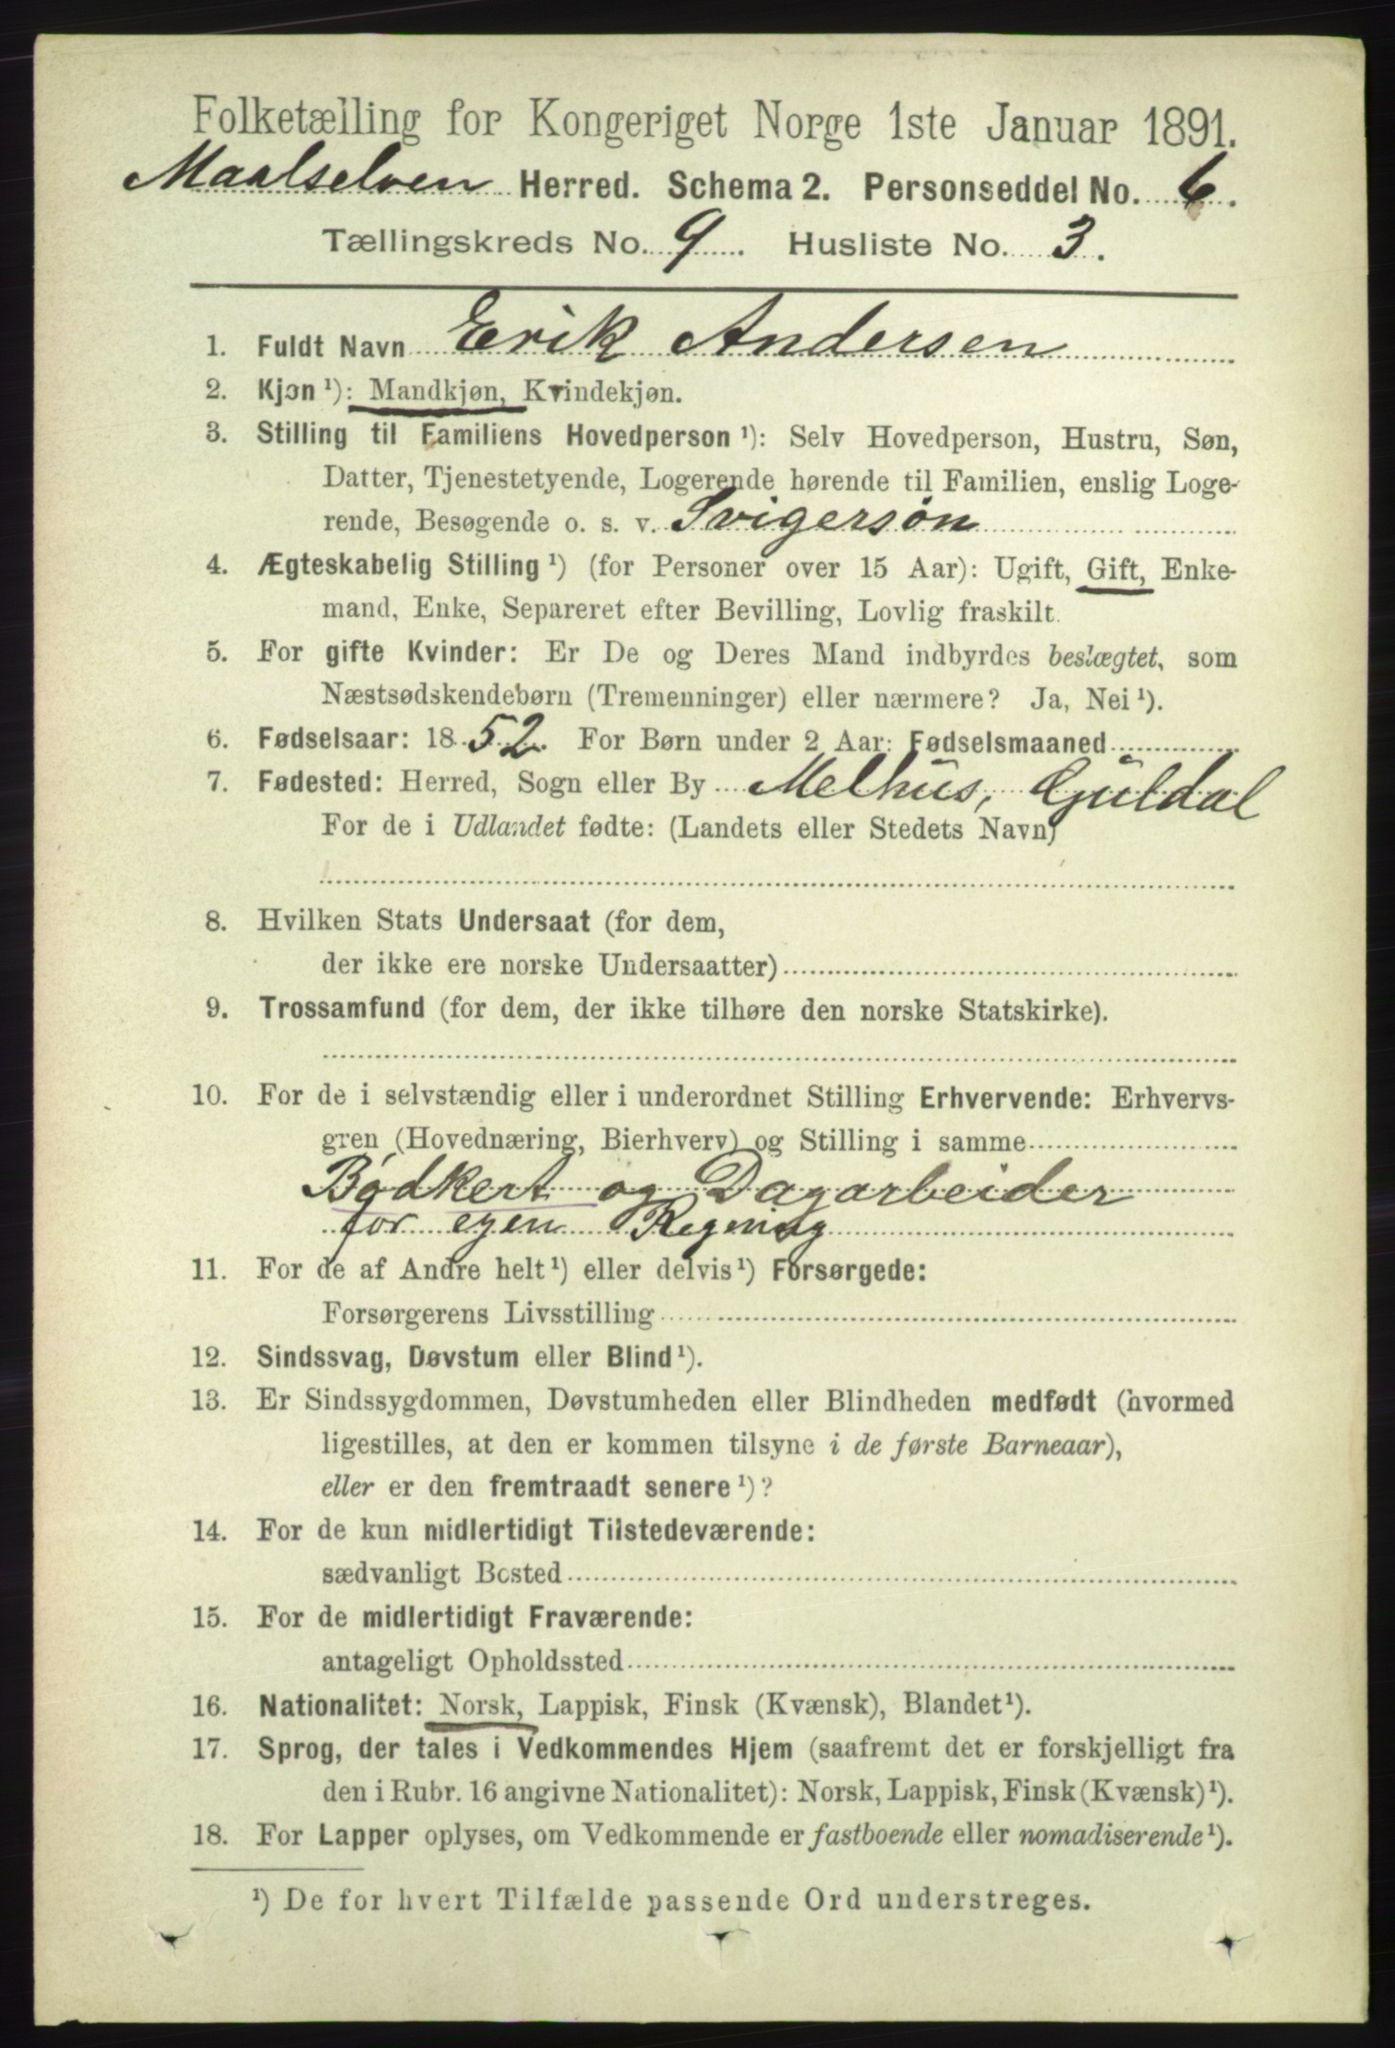 Folketælling for Kongeriget Norge 1ste Januar 1891.
Maalselven Herred. Schema 2. Personseddel No. 6.
Tællingskreds No. 9. Husliste No. 3.
1. Fuldt Navn Erik Andersen
2. Kjøn ¹): Mandkjøn, Kvindekjøn.
3. Stilling til Familiens Hovedperson ¹): Selv Hovedperson, Hustru, Søn,
Datter, Tjenestetyende, Logerende hørende til Familien, enslig Loge-
rende, Besøgende o. s. v. Svigersøn
4. Ægteskabelig Stilling ¹) (for Personer over 15 Aar): Ugift, Gift, Enke-
mand, Enke, Separeret efter Bevilling, Lovlig fraskilt.
5. For gifte Kvinder: Er De og Deres Mand indbyrdes beslægtet, som
Næstsødskendebørn (Tremenninger) eller nærmere? Ja, Nei ¹).
6. Fødselsaar: 1852. For Børn under 2 Aar: Fødselsmaaned
7. Fødested: Herred, Sogn eller By Melhus, Guldal
For de i Udlandet fødte: (Landets eller Stedets Navn)
8. Hvilken Stats Undersaat (for dem,
der ikke ere norske Undersaatter)
9. Trossamfund (for dem, der ikke tilhøre den norske Statskirke).
10. For de i selvstændig eller i underordnet Stilling Erhvervende: Erhvervs-
gren (Hovednæring, Bierhverv) og Stilling i samme
Bødkert og Dagarbeider
for egen Regning
11. For de af Andre helt ¹) eller delvis ¹) Forsørgede:
Forsørgerens Livsstilling
12. Sindssvag, Døvstum eller Blind ¹).
13. Er Sindssygdommen, Døvstumheden eller Blindheden medfødt (hvormed
ligestilles, at den er kommen tilsyne i de første Barneaar),
eller er den fremtraadt senere ¹)?
14. For de kun midlertidigt Tilstedeværende:
sædvanligt Bosted
15. For de midlertidigt Fraværende:
antageligt Opholdssted
16. Nationalitet: Norsk, Lappisk, Finsk (Kvænsk), Blandet ¹).
17. Sprog, der tales i Vedkommendes Hjem (saafremt det er forskjelligt fra
den i Rubr. 16 angivne Nationalitet): Norsk, Lappisk, Finsk (Kvænsk) ¹).
18. For Lapper oplyses, om Vedkommende er fastboende eller nomadiserende ¹).
¹) De for hvert Tilfælde passende Ord understreges.